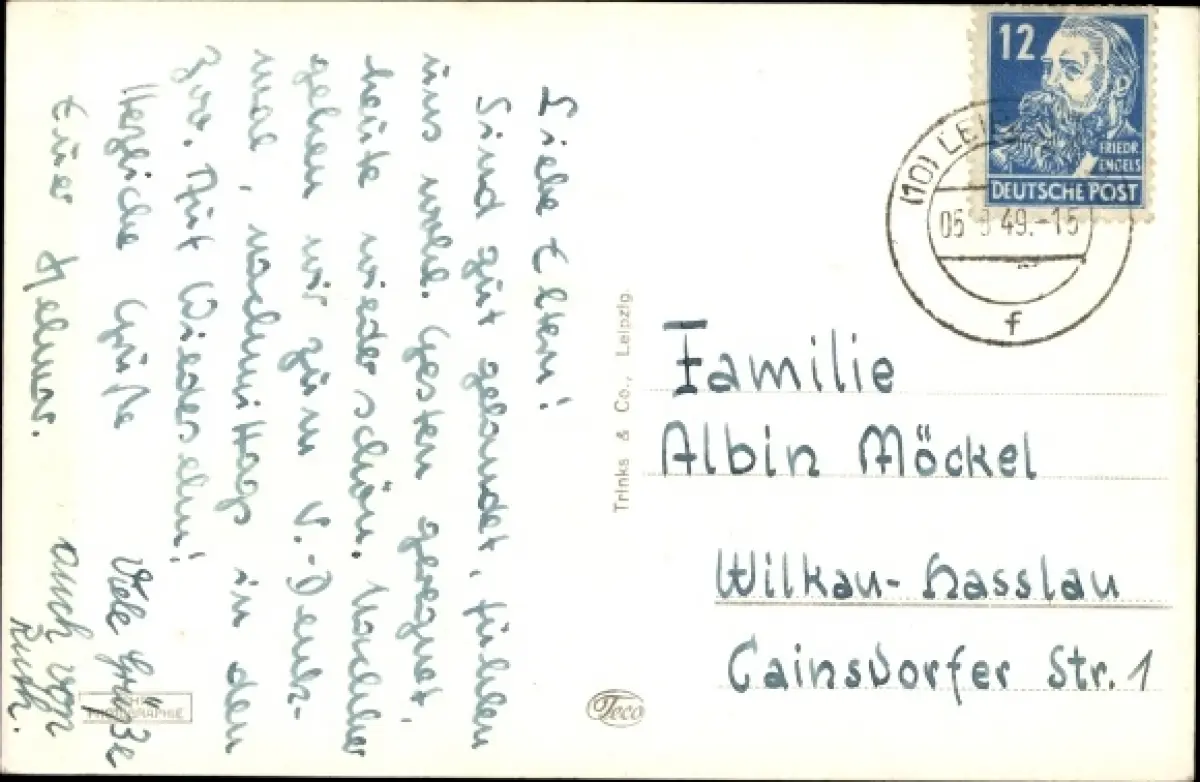 Liebe Eltern!
Sind gut gelandet, fühlen
uns wohl. Gestern geregnet,
heute wieder schön. Nachher
gehen wir zum V.-Denk-
mal, nachmittags in den
Zoo. Auf Wiedersehn!
Herzliche Grüße
Euer Helmut.
Viele Grüße
auch von
Ruth.
Trinks & Co., Leipzig.
12
FRIEDR.
ENGELS
DEUTSCHE POST
(10) LEIPZIG
49.-15
f
Familie
Albin Möckel
Wilkau-Hasslau
Cainsdorfer Str. 1
PHOTOGRAPHIE
Teco